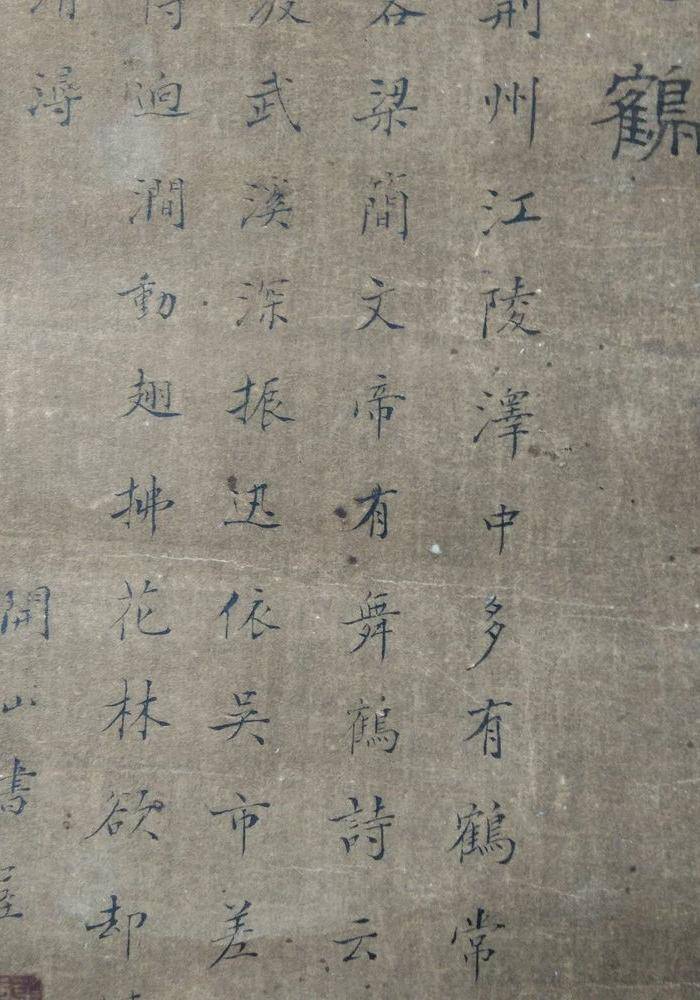 鶴
荆州江陵澤中多有鶴常
梁簡文帝有舞鶴詩云
武溪深振迅依吴市差
逈澗動翅拂花林欲却
潯
開山書屋